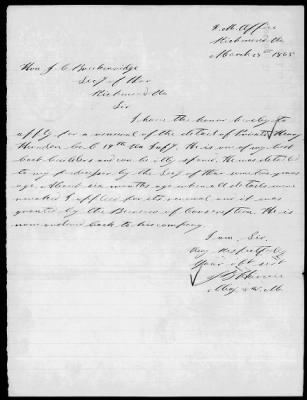 Q. M. Office
Richmond Va
March 25th 1865
Hon J. C. Breckenridge
Secy of War
Richmond Va
Sir
I have the honor hereby to
apply for a renewal of the detail of Private Henry
Co. C 19th Va Inft. He is one of my best
boat builders and can be illy spared. He was detailed
to my predecessor by the Secy of War some two years
ago. About six months ago when all details were
revoked I applied for its renewal and it was
granted by the Bureau of Conscription. He is
now ordered back to his company.
I am Sir,
Very Respectfully
Your obt servt
Maj & Q. M.